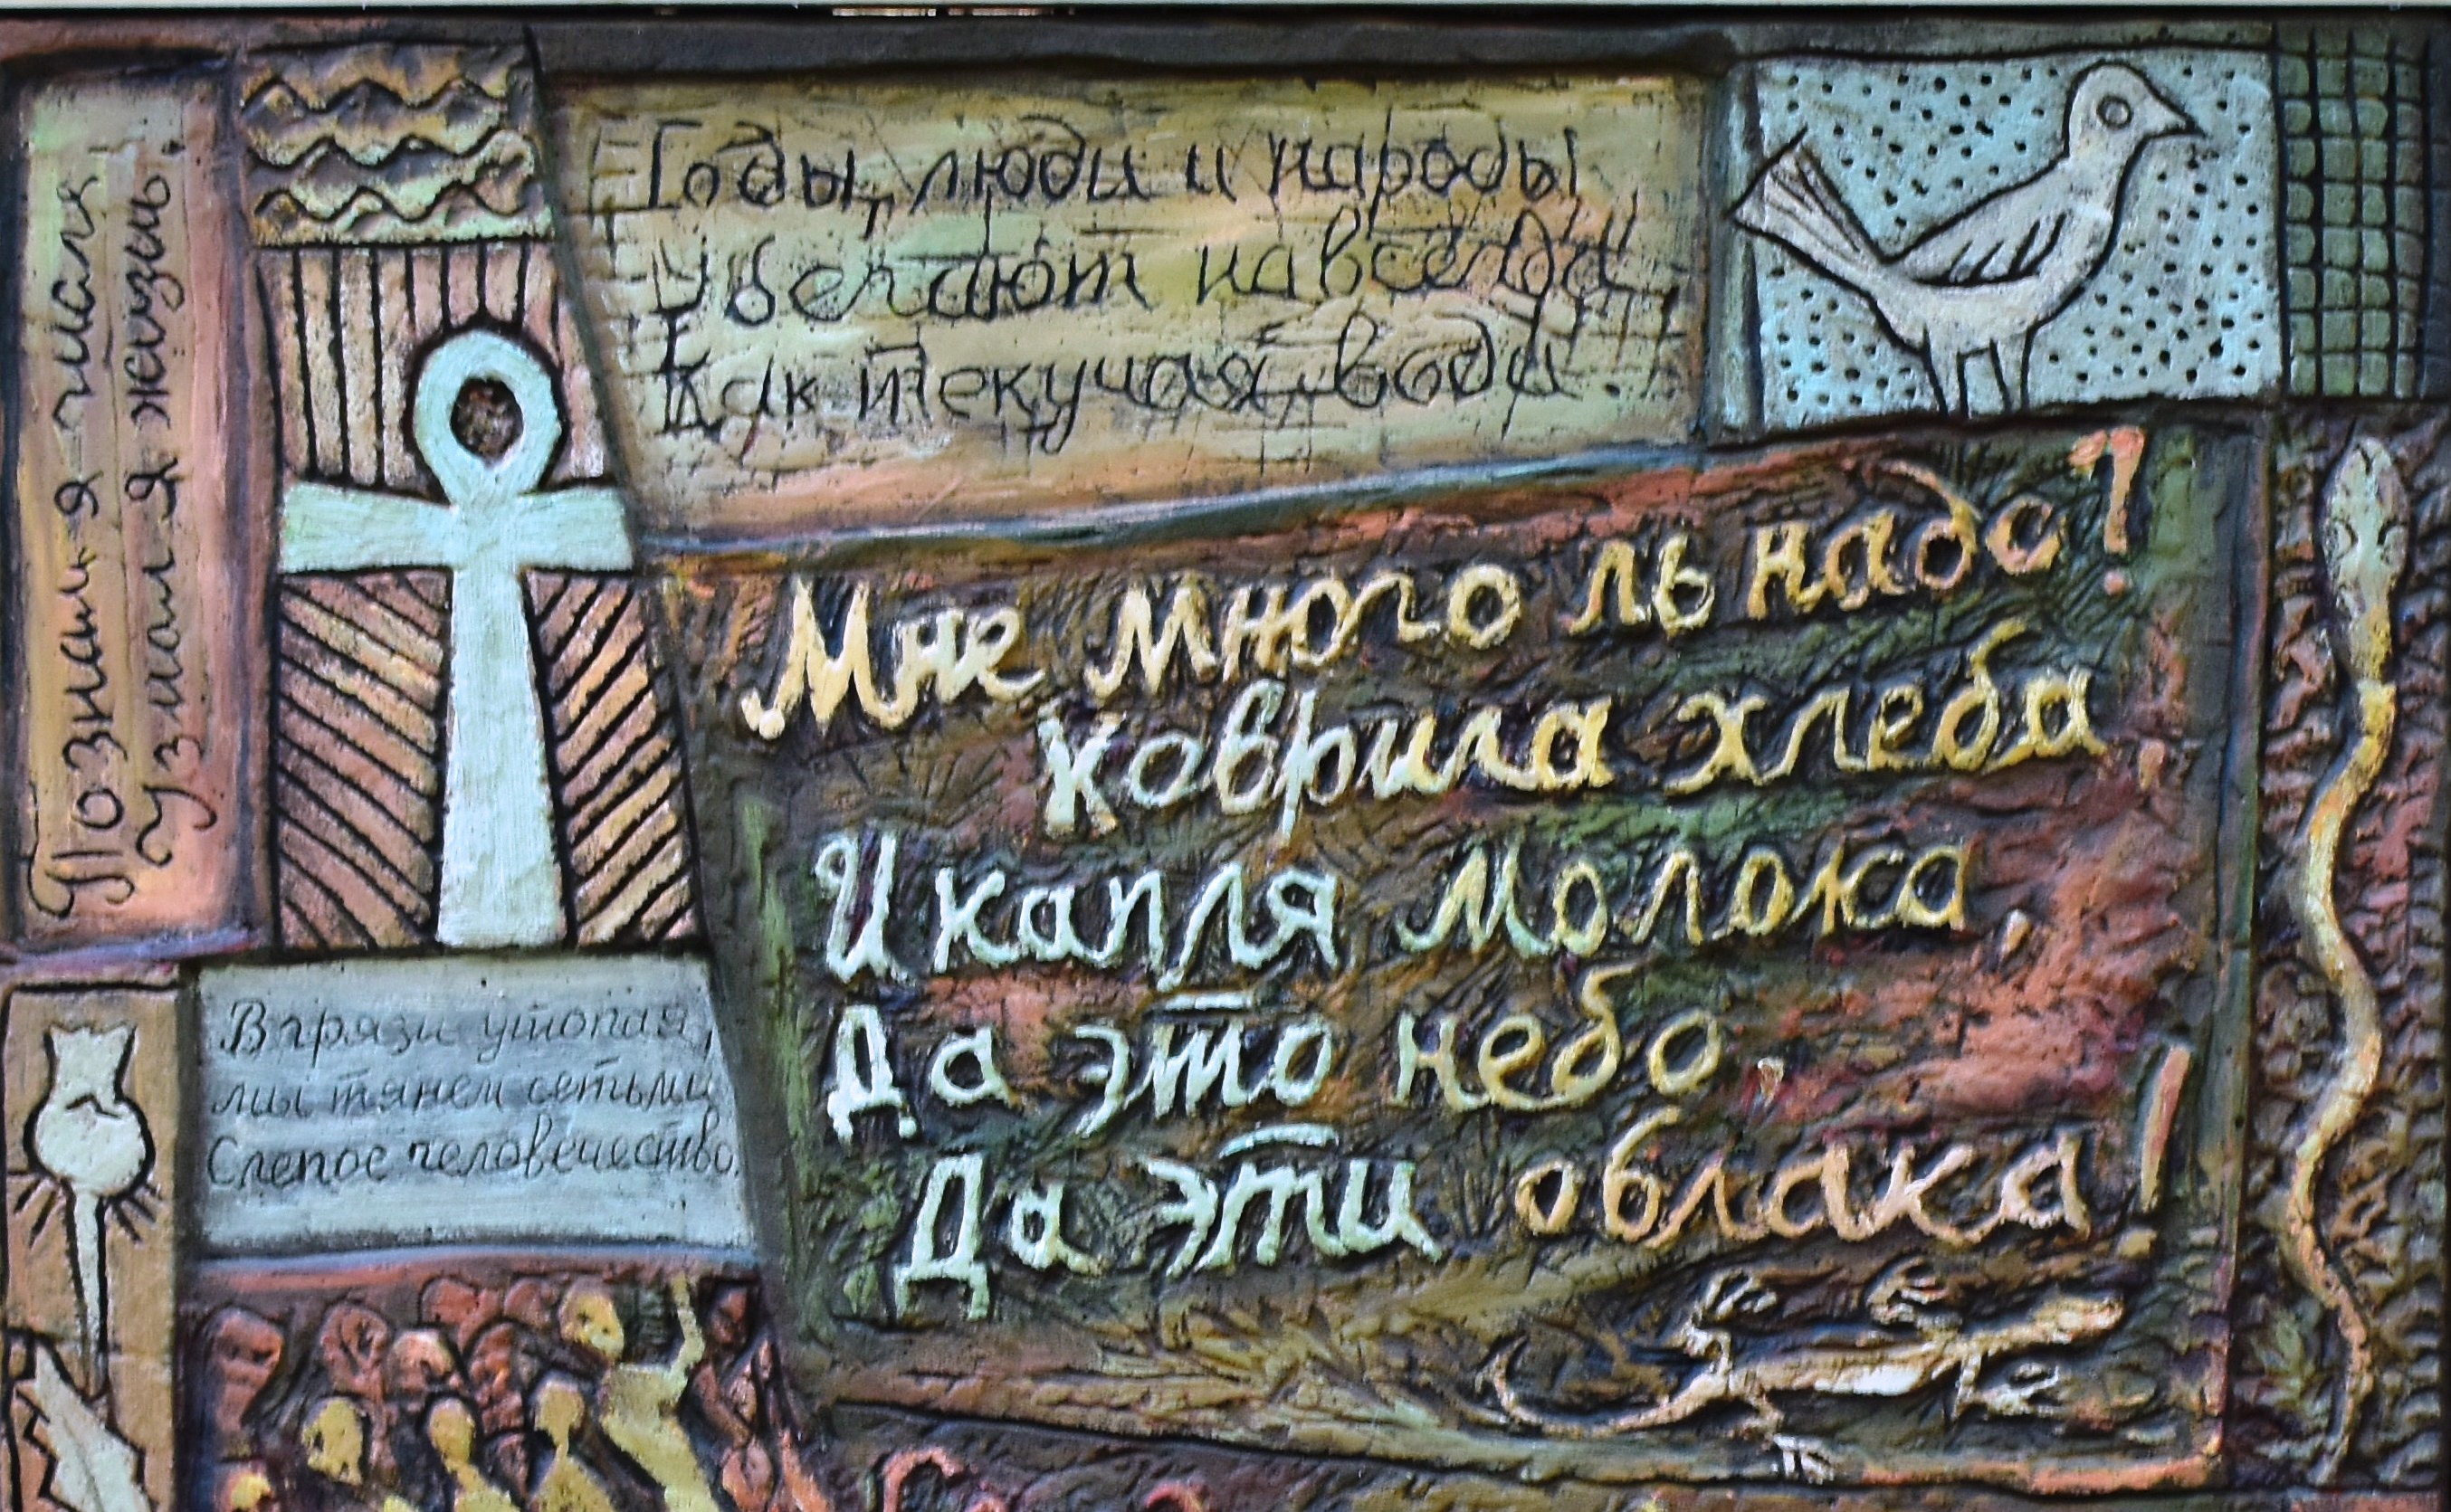 Познал я числа,
Узнал я жизнь.
Годы, люди и народы
Убегают навсегда,
Как текучая вода.
Мне много ль надо?
Коврига хлеба
И капля молока,
Да это небо,
Да эти облака!
В грязи утопая,
мы тянем сетьми
Слепое человечество.